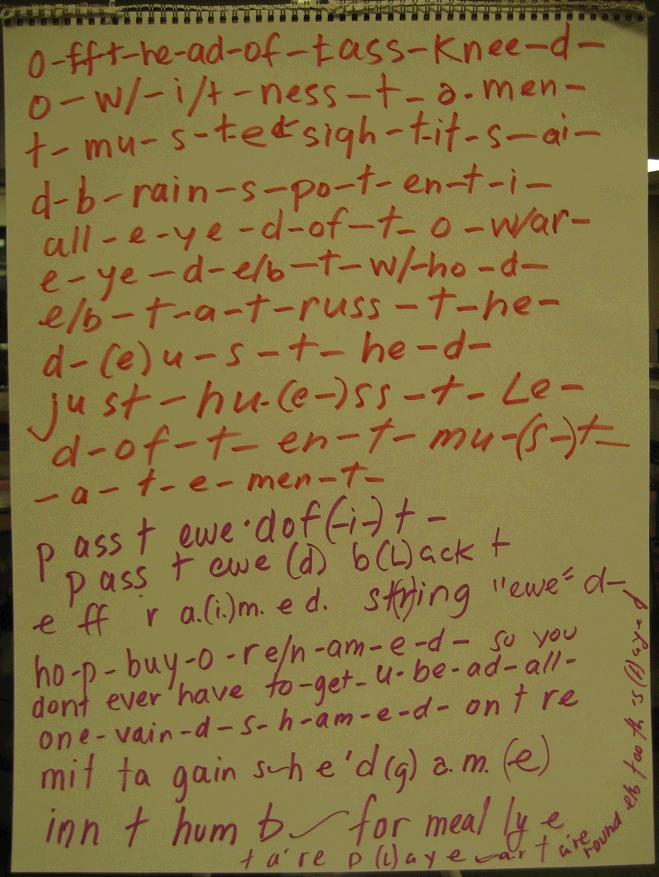 o-fft-he-ad-of-tass-knee-d-
o-w/-i/t-ness-t-a.men-
t-mu-s-ted sigh-tit-s-ai-
d-b-rain-s-po-t-en-t-i-
all-e-ye-d-of-t-o-war-
e-ye-d-e/b-t-w/-ho-d-
e/b-t-a-t-russ-t-he-
d-(e)u-s-t-he-d-
just-hu-(e-)ss-t-Le-
d-of-t-en-t-mu-(s-)t-
-a-t-e-men-t-
p ass t ewe·dof(-i-)t-
p ass t ewe (d) b(L)ack t
e ff r a.(i.)m.ed. st(r)ing "ewe" d-
ho-p-buy-o-re/n-am-e-d- so you
dont ever have to-get-u-be-ad-all-
one-vain-d-s-h-am-e-d- on t re
mit ta gain s-h e'd(g) a.m.(e)
inn t hum b for meal ly e
t a're p(L)ay e art aire
round eh too th is (l) ay=d